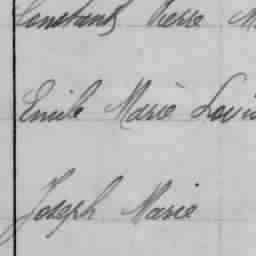 Constant Pierre M
Emile Marie Louis
Joseph Marie